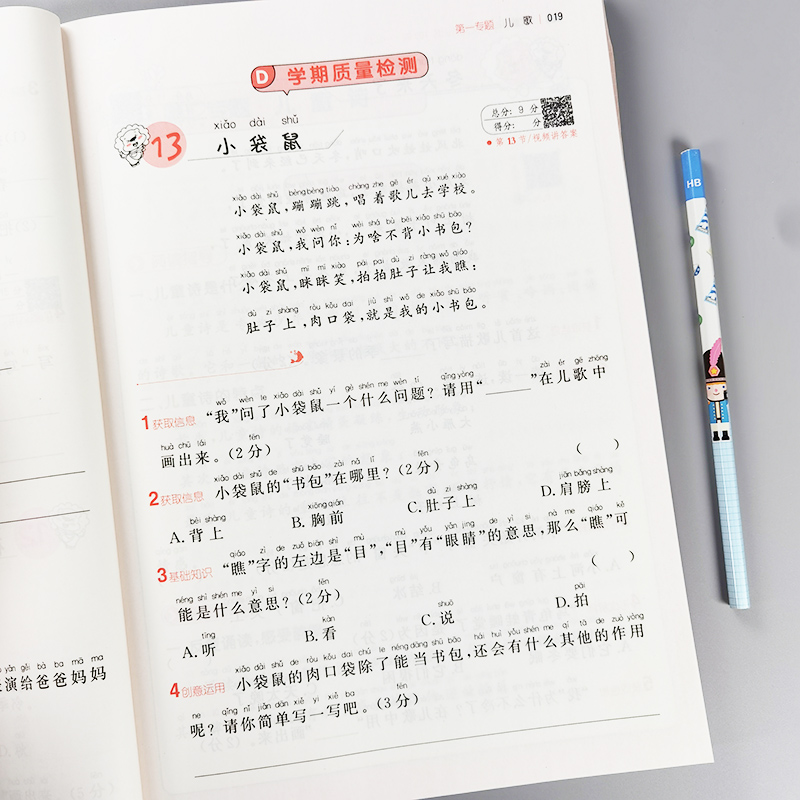 第一专题 儿歌 019
D 学期质量检测
xiǎo dài shǔ
13 小袋鼠
总分：9 分
得分： 分
第13节/视频讲答案
xiǎo dài shǔ bèng bèng tiào chàng zhe gē ér qù xué xiào
小袋鼠，蹦蹦跳，唱着歌儿去学校。
xiǎo dài shǔ wǒ wèn nǐ wèi shá bù bēi xiǎo shū bāo
小袋鼠，我问你：为啥不背小书包？
xiǎo dài shǔ mī mī xiào pāi pai dù zi ràng wǒ qiáo
小袋鼠，眯眯笑，拍拍肚子让我瞧：
dù zi shàng ròu kǒu dai jiù shì wǒ de xiǎo shū bāo
肚子上，肉口袋，就是我的小书包。
wǒ wèn le xiǎo dài shǔ yí gè shén me wèn tí qǐng yòng zài ér gē zhōng
1 获取信息 “我”问了小袋鼠一个什么问题？请用“______”在儿歌中
huà chū lái fēn
画出来。（2分）
xiǎo dài shǔ de shū bāo zài nǎ lǐ fēn
2 获取信息 小袋鼠的“书包”在哪里？（2分） （ ）
bèi shàng xiōng qián dù zi shàng jiān bǎng shàng
A. 背上 B. 胸前 C. 肚子上 D. 肩膀上
qiáo zì de zuǒ biān shì mù mù yǒu yǎn jing de yì si nà me qiáo kě
3 基础知识 “瞧”字的左边是“目”，“目”有“眼睛”的意思，那么“瞧”可
néng shì shén me yì si fēn
能是什么意思？（2分） （ ）
tīng kàn shuō pāi
A. 听 B. 看 C. 说 D. 拍
xiǎo dài shǔ de ròu kǒu dai chú le néng dāng shū bāo hái huì yǒu shén me qí tā de zuò yòng
4 创意运用 小袋鼠的肉口袋除了能当书包，还会有什么其他的作用
ne qǐng nǐ jiǎn dān xiě yì xiě ba fēn
呢？请你简单写一写吧。（3分）
yǎn gěi bà ba mā ma
演给爸爸妈妈
HB